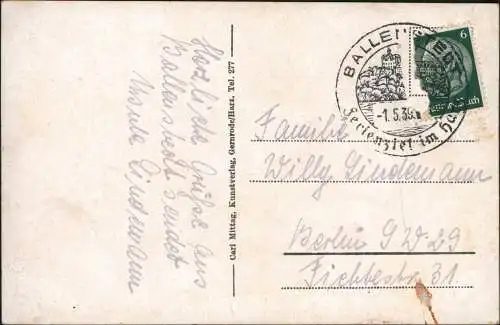 Herzliche Grüße aus
Ballenstedt sendet
Lindemann
Carl Mittag, Kunstverlag, Gernrode/Harz, Tel. 277
BALLENSTEDT
-1.5.36
Ferienziel im Ha
6
Familie
Willy Lindemann
Berlin SW 29
Fichtestr. 31